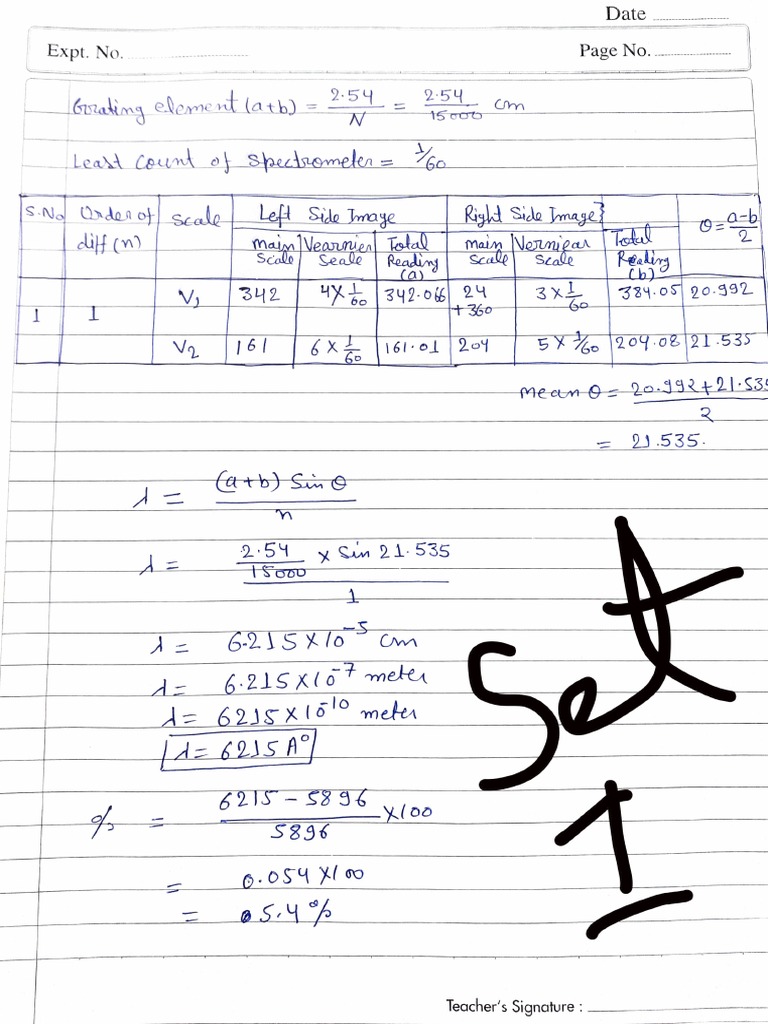 Date
Expt. No.
Page No.
Grating element (a+b) = 2.54/N = 2.54/15000 cm
Least Count of Spectrometer = 1/60
S.No Order of diff (n) Scale Left Side Image Right Side Image} θ = a-b/2
main Scale Vearnier Scale Total Reading (a) main Scale Verniear Scale Total Reading (b)
1 1 V1 342 4 X 1/60 342.066 24 +360 3 X 1/60 384.05 20.992
V2 161 6 X 1/60 161.01 204 5 X 1/60 204.08 21.535
mean θ = 20.992+21.535/2
= 21.535.
λ = (a+b) Sin θ/n
λ = 2.54/15000 x Sin 21.535/1
λ = 6.215 X 10-5 cm
λ = 6.215 X 10-7 meter
λ = 6215 X 10-10 meter
λ = 6215 A°
% = 6215 - 5896/5896 X 100
= 0.054 X 100
= 05.4 %
Set
1
Teacher's Signature :